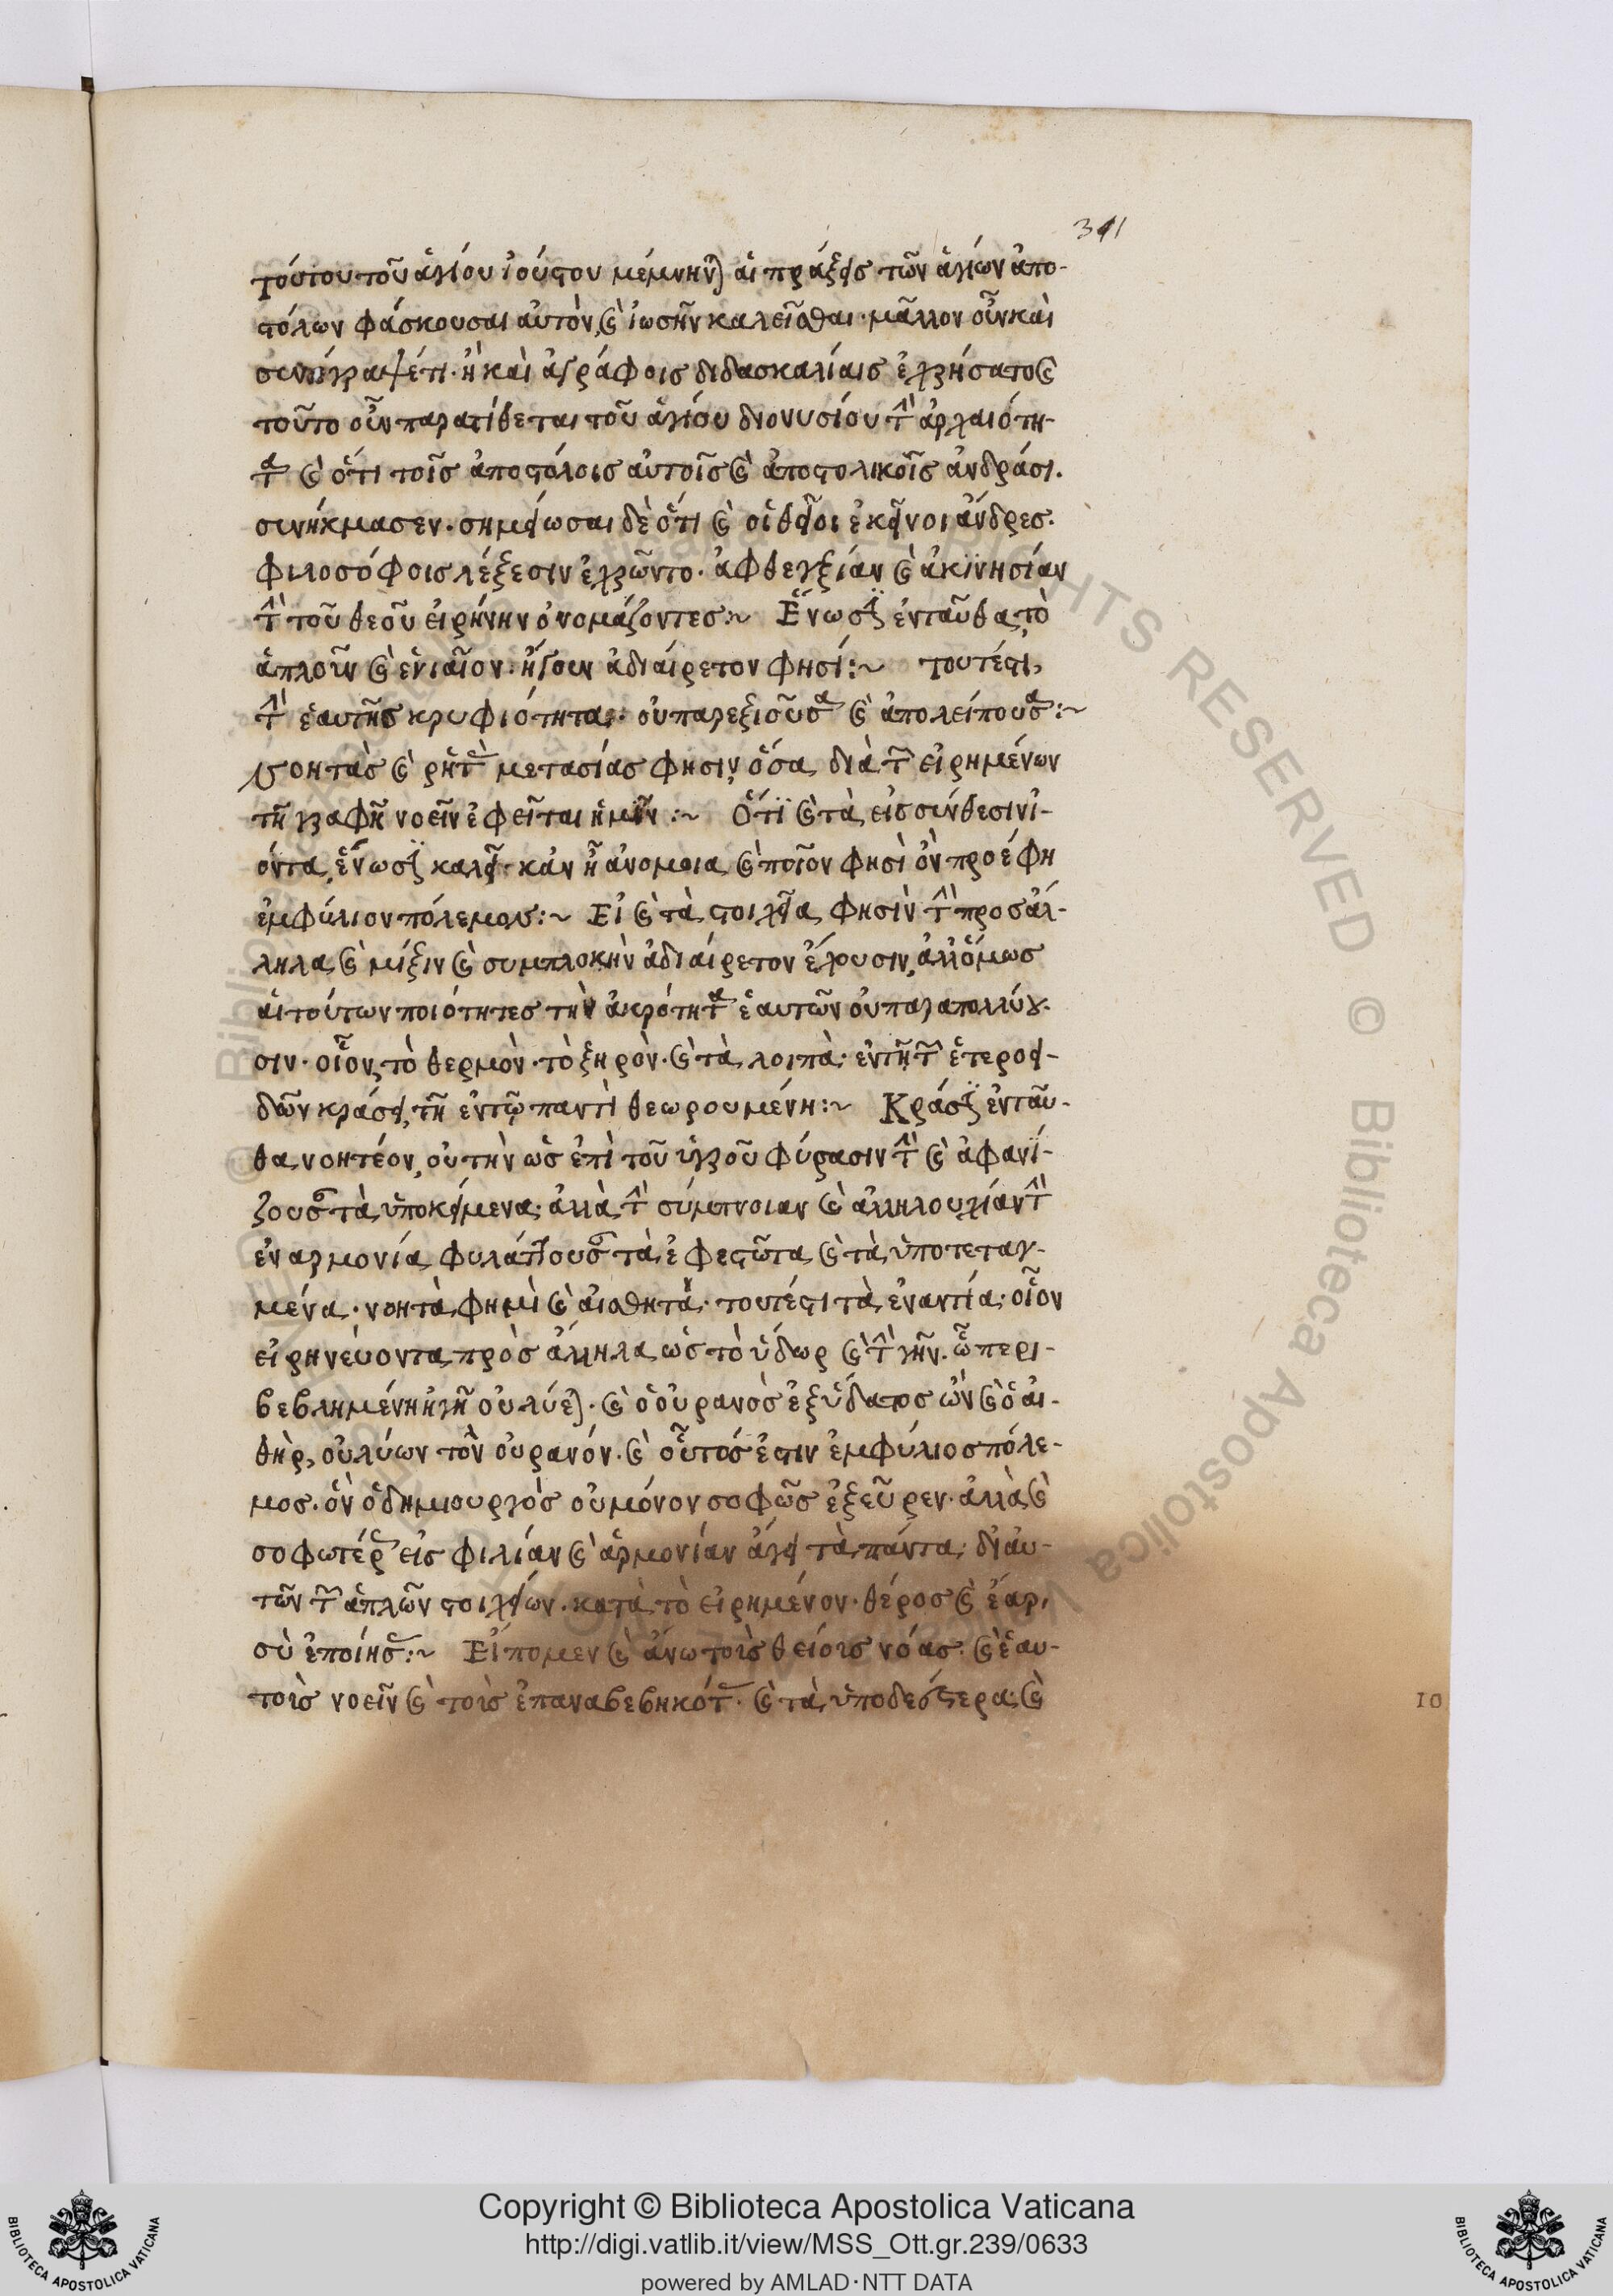 341
τούτου τοῦ ἁγίου ἰούστου μέμνηνται αἱ πράξεις τῶν ἁγίων ἀπο-
στόλων φάσκουσαι αὐτὸν, καὶ ἰωσῆν καλεῖσθαι· μᾶλλον οὖν καὶ
ἢ καὶ ἀγράφοις διδασκαλίαις ἐχρήσατο καὶ
τοῦτο οὖν παρατίθεται τοῦ ἁγίου διονυσίου τὴν ἀρχαιότη-
τα καὶ ὅτι τοῖς ἀποστόλοις αὐτοῖς καὶ ἀποστολικοῖς ἀνδράσι.
συνήκμασεν. σημείωσαι δὲ ὅτι καὶ οἱ θεῖοι ἐκεῖνοι ἄνδρες.
φιλοσόφοις λέξεσιν ἐχρῶντο. ἀφθεγξίαν καὶ ἀκινησίαν
τὴν τοῦ θεοῦ εἰρήνην ὀνομάζοντες:~ Ἕνωσιν ἐνταῦθα, τὸ
ἁπλοῦν καὶ ἑνιαῖον. ἤγουν ἀδιαίρετον φησί:~ τουτέστι,
τὴν ἑαυτῆς κρυφιότητα, οὐ παρεξιοῦσα καὶ ἀπολείπουσα:~
νοητὰς καὶ ῥητὰς μετουσίας φησιν, ὅσα διὰ τῶν εἰρημένων
τῇ γραφῇ νοεῖν ἐφεῖται ἡμῖν:~ Ὅτι καὶ τὰ, εἰς σύνθεσιν ἰ-
όντα, ἕνωσιν καλεῖ· κἀν ᾖ ἀνόμοια καὶ ποῖον φησὶ ὃν προέφη
ἐμφύλιον πόλεμον:~ Εἰ καὶ τὰ στοιχεῖα φησὶν τὴν προσάλ-
ληλα καὶ μίξιν καὶ συμπλοκὴν ἀδιαίρετον ἔχουσιν, ἀλλ' ὅμως
αἱ τούτων ποιότητες τὴν ἀκρότητα ἑαυτῶν οὐ παραπολλύου-
σιν. οἷον, τὸ θερμὸν. τὸ ξηρὸν. καὶ τὰ λοιπὰ· ἐν τῇ τῶν ἑτεροει-
δῶν κράσει, τῇ ἐν τῷ παντὶ θεωρουμένῃ:~ Κράσιν ἐνταῦ-
θα νοητέον, οὐ τὴν ὡς ἐπὶ τοῦ ὑγροῦ φύρασιν τὴν καὶ ἀφανί-
ζουσαν τὰ ὑποκείμενα· ἀλλὰ τὴν σύμπνοιαν καὶ ἀλληλουχίαν τὴν
ἐν ἁρμονία φυλάττουσαν τὰ ἐφεστῶτα καὶ τὰ ὑποτεταγ-
μένα. νοητὰ φημὶ καὶ αἰσθητά. τουτέστι τὰ ἐναντία· οἷον
εἰρηνεύοντα πρὸς ἄλληλα, ὡς τὸ ὕδωρ καὶ τὴν γῆν. ὧ περι-
βεβλημένη ἡ γῆ οὐ λύεται. καὶ ὁ οὐρανὸς ἐξ ὕδατος ὢν καὶ ὁ αἰ-
θὴρ, οὐ λύων τὸν οὐρανόν. καὶ οὗτός ἐστιν ἐμφύλιος πόλε-
μος. ὃν ὁ δημιουργὸς οὐ μόνον σοφῶς ἐξεῦρεν. ἀλλὰ καὶ
σοφωτέρως εἰς φιλίαν καὶ ἁρμονίαν ἄγει τὰ πάντα, δι' αὐ-
τῶν τῶν ἁπλῶν στοιχείων. κατὰ τὸ εἰρημένον. θέρος καὶ ἔαρ,
σὺ ἐποίησας:~ Εἴπομεν καὶ ἄνω τοὺς θείους νόας. καὶ ἑαυ-
τοὺς νοεῖν καὶ τοὺς ἐπαναβεβηκότας. καὶ τὰ ὑποδεέστερα, καὶ
10
© Biblioteca Apostolica Vaticana
RIGHTS RESERVED
Copyright © Biblioteca Apostolica Vaticana
http://digi.vatlib.it/view/MSS_Ott.gr.239/0633
powered by AMLAD·NTT DATA
BIBLIOTECA APOSTOLICA VATICANA
BIBLIOTECA APOSTOLICA VATICANA